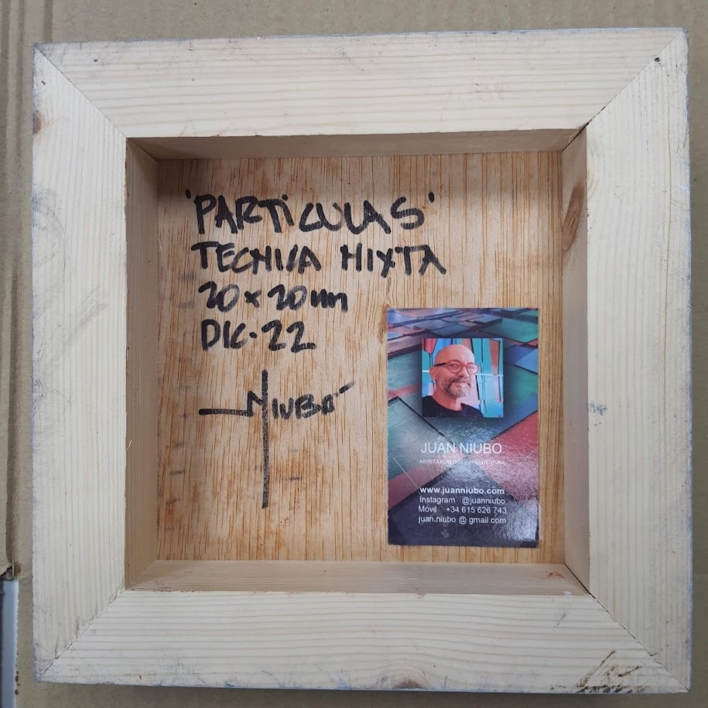 'PARTiCULAS'
TECNICA MIXTA
20 x 20 cm
DIC·22
NIUBÓ
JUAN NIUBO
www.juanniubo.com
Instagram @juanniubo
Móvil +34 615 626 743
juan.niubo @ gmail.com